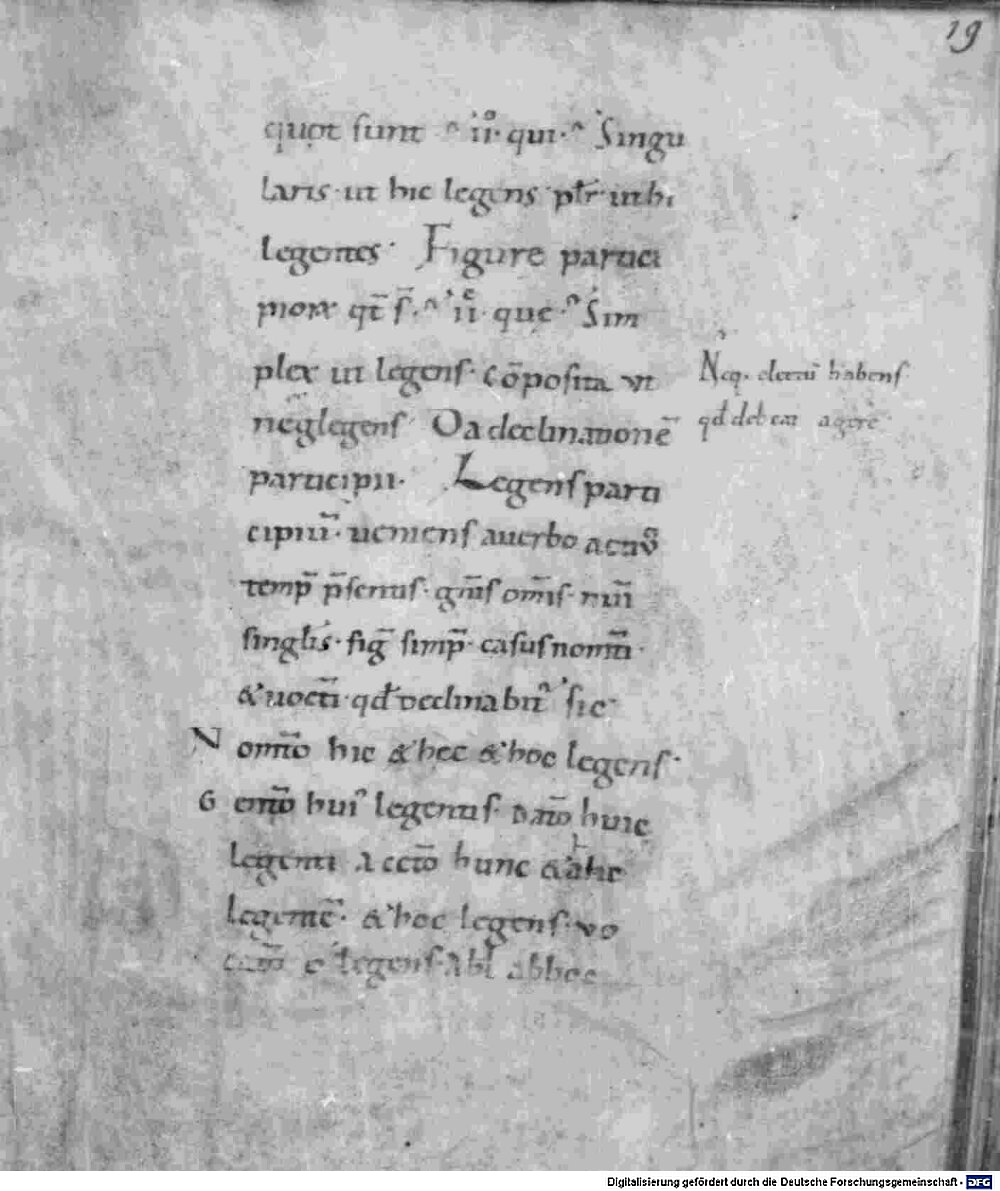 19
quot sunt · ii· qui· Singu
laris· ut hic legens· plr̄· ut hi
legentes· Figure partici
piorū qt̄ s̄· ii· que· Sim
plex ut legens· cōposita ut
neglegens Da declinationē
participii· Legens parti
cipiū· ueniens a uerbo actiū
temp̄ p̄sentis· gn̄is om̄is· nūi
singl̄is· fiḡ simp̄· casus nom̄ti·
& uoc̄ti· qd̄ declinabit̄ sic·
Nom̄to hic & hec & hoc legens·
Gen̄to hui' legentis· Dat̄o huic
legenti Acct̄o hunc & hanc
legentē· & hoc legens· uo
cat̄o o legens· Abl̄ ab hoc
Neq· electū habens
qd̄ debeat agere
Digitalisierung gefördert durch die Deutsche Forschungsgemeinschaft - DFG